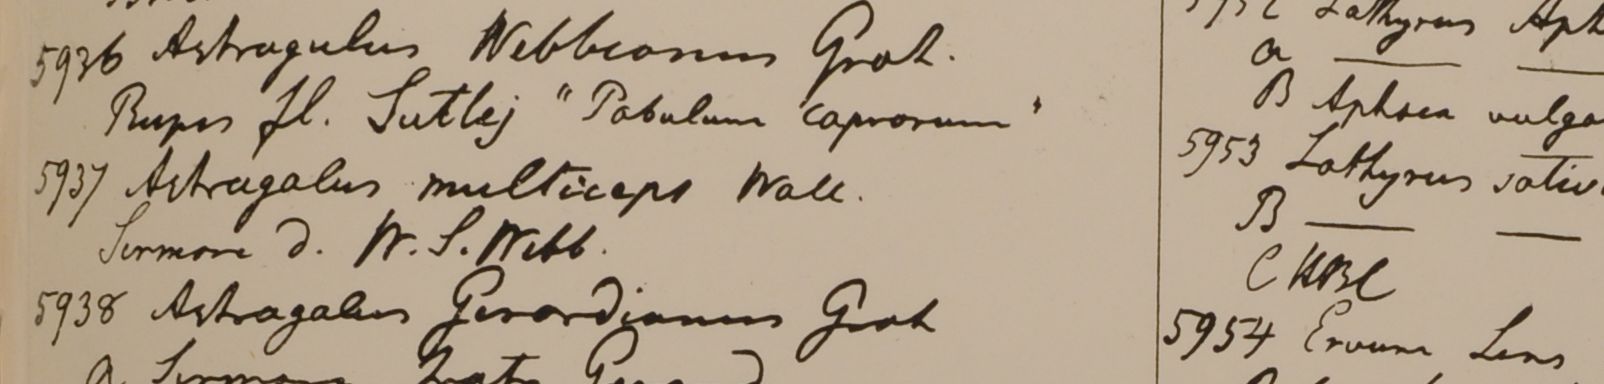 5936 Astragulus Webbianus Grah.
Rupes fl. Sutlej "Pabulum caprorum"
5937 Astragalus multiceps Wall.
Sirmore d. W. S. Webb.
5938 Astragalus Gerardianus Grah
a Sirmore
Lathyrus Aph
a — —
B Aphaca vulga
5953 Lathyrus sativ
B — —
C HBC
5954 Ervum Lens